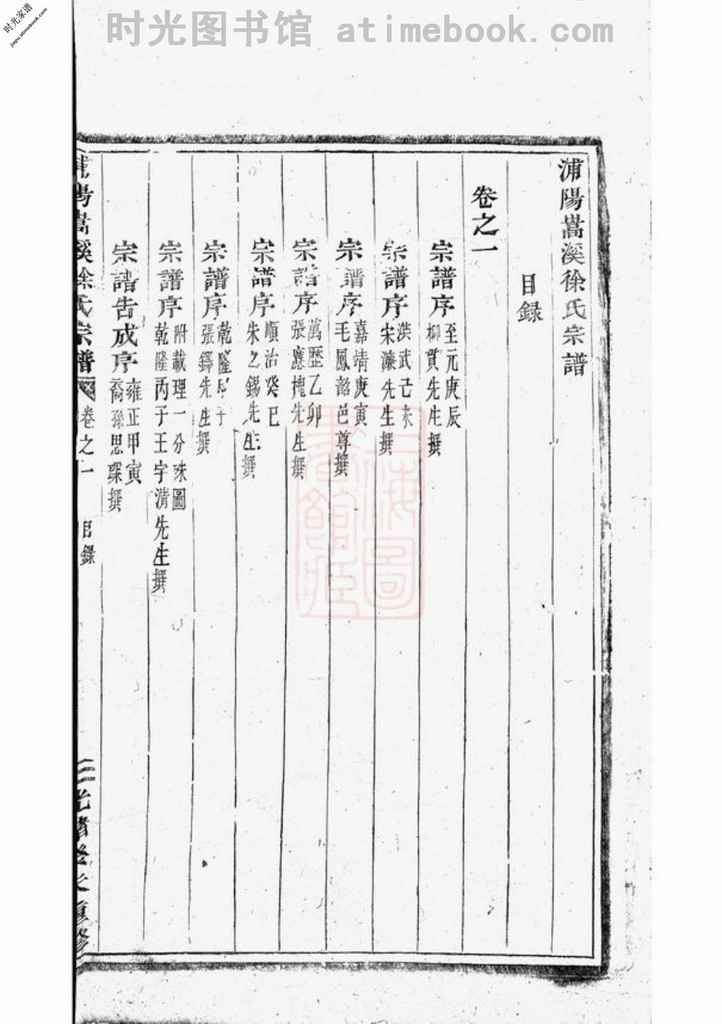 时光图书馆 atimebook.com
时光家谱
jiapu.atimebook.com
浦陽嵩溪徐氏宗譜
目錄
卷之一
宗譜序 至元庚辰
柳貫先生撰
宗譜序 洪武己未
宋濂先生撰
宗譜序 嘉靖庚寅
毛鳳韶邑尊撰
宗譜序 萬歷乙卯
張應槐先生撰
宗譜序 順治癸巳
朱之錫先生撰
宗譜序 乾隆子
張鐸先生撰
宗譜序 附載理一分殊圖
乾隆丙子王宇清先生撰
宗譜告成序 雍正甲寅
裔孫思琛撰
浦陽嵩溪徐氏宗譜 卷之一 目錄 光緒重修
上海圖書館莊